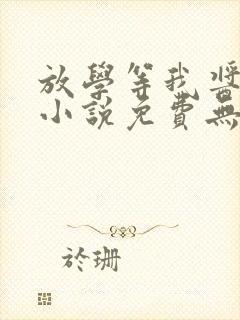 放學等我醬
小說免費無
於珊